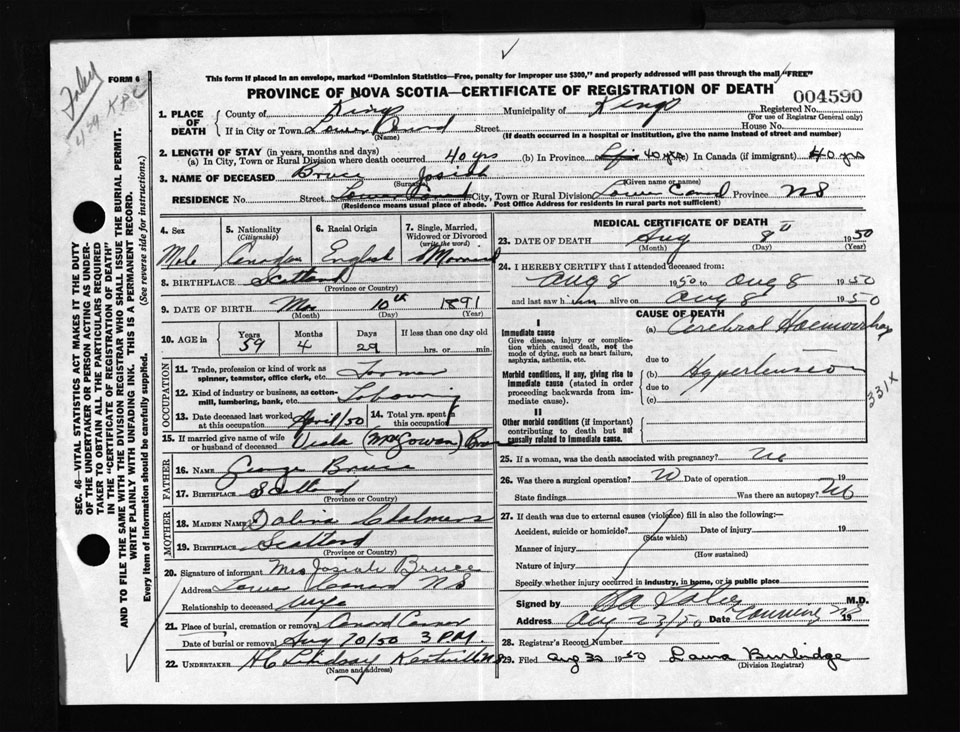 This form if placed in an envelope, marked "Dominion Statistics—Free, penalty for improper use $300," and properly addressed will pass through the mail "FREE"
FORM 6
PROVINCE OF NOVA SCOTIA—CERTIFICATE OF REGISTRATION OF DEATH
004590
1. PLACE OF DEATH
County of Kings Municipality of Kings Registered No.
(For use of Registrar General only)
If in City or Town Street House No.
(Name) (If death occurred in a hospital or institution, give the name instead of street and number)
2. LENGTH OF STAY (in years, months and days)
(a) In City, Town or Rural Division where death occurred 40 yrs (b) In Province 40 yrs (c) In Canada (if immigrant) 40 yrs
3. NAME OF DECEASED Bruce Josiah
(Surname) (Given name or names)
RESIDENCE No. Street City, Town or Rural Division Lower Canard Province NS
(Residence means usual place of abode. Post Office Address for residents in rural parts not sufficient)
4. Sex Male
5. Nationality (Citizenship) Canadian
6. Racial Origin English
7. Single, Married, Widowed or Divorced (write the word) Married
8. BIRTHPLACE Scotland
(Province or Country)
9. DATE OF BIRTH Mar 10th 1891
(Month) (Day) (Year)
10. AGE in Years 59 Months 4 Days 29 If less than one day old hrs. or min.
OCCUPATION
11. Trade, profession or kind of work as spinner, teamster, office clerk, etc.
12. Kind of industry or business, as cotton-mill, lumbering, bank, etc.
13. Date deceased last worked at this occupation April/50
14. Total yrs. spent in this occupation
15. If married give name of wife or husband of deceased
FATHER
16. NAME George Bruce
17. BIRTHPLACE Scotland
(Province or Country)
MOTHER
18. MAIDEN NAME Chalmers
19. BIRTHPLACE Scotland
(Province or Country)
20. Signature of informant Mrs Josiah Bruce
Address Lower Canard NS
Relationship to deceased wife
21. Place of burial, cremation or removal
Date of burial or removal Aug 10/50 3 P.M.
22. UNDERTAKER H C Lindsay Kentville NS
(Name and address)
MEDICAL CERTIFICATE OF DEATH
23. DATE OF DEATH Aug 8 1950
(Month) (Day) (Year)
24. I HEREBY CERTIFY that I attended deceased from:
Aug 8 1950 to Aug 8 1950
and last saw him alive on Aug 8 1950
CAUSE OF DEATH
I
Immediate cause
Give disease, injury or complication which caused death, not the mode of dying, such as heart failure, asphyxia, asthenia, etc.
(a) Cerebral Haemorrhage
due to
Morbid conditions, if any, giving rise to immediate cause (stated in order proceeding backwards from immediate cause).
(b) Hypertension
due to
(c)
331X
II
Other morbid conditions (if important) contributing to death but not causally related to immediate cause.
25. If a woman, was the death associated with pregnancy? No
26. Was there a surgical operation? No Date of operation 19
State findings Was there an autopsy? No
27. If death was due to external causes (violence) fill in also the following:—
Accident, suicide or homicide? Date of injury 19
(State which)
Manner of injury
(How sustained)
Nature of injury
Specify whether injury occurred in industry, in home, or in public place
Signed by M.D.
Address Aug 23/50 Date Canning NS 19
28. Registrar's Record Number
29. Filed Aug 30 1950 Laura Burbidge
(Division Registrar)
SEC. 46—VITAL STATISTICS ACT MAKES IT THE DUTY
OF THE UNDERTAKER OR PERSON ACTING AS UNDER-
TAKER TO OBTAIN ALL THE PARTICULARS REQUIRED
IN THE "CERTIFICATE OF REGISTRATION OF DEATH"
AND TO FILE THE SAME WITH THE DIVISION REGISTRAR WHO SHALL ISSUE THE BURIAL PERMIT.
WRITE PLAINLY WITH UNFADING INK. THIS IS A PERMANENT RECORD.
Every item of Information should be carefully supplied. (See reverse side for instructions.)